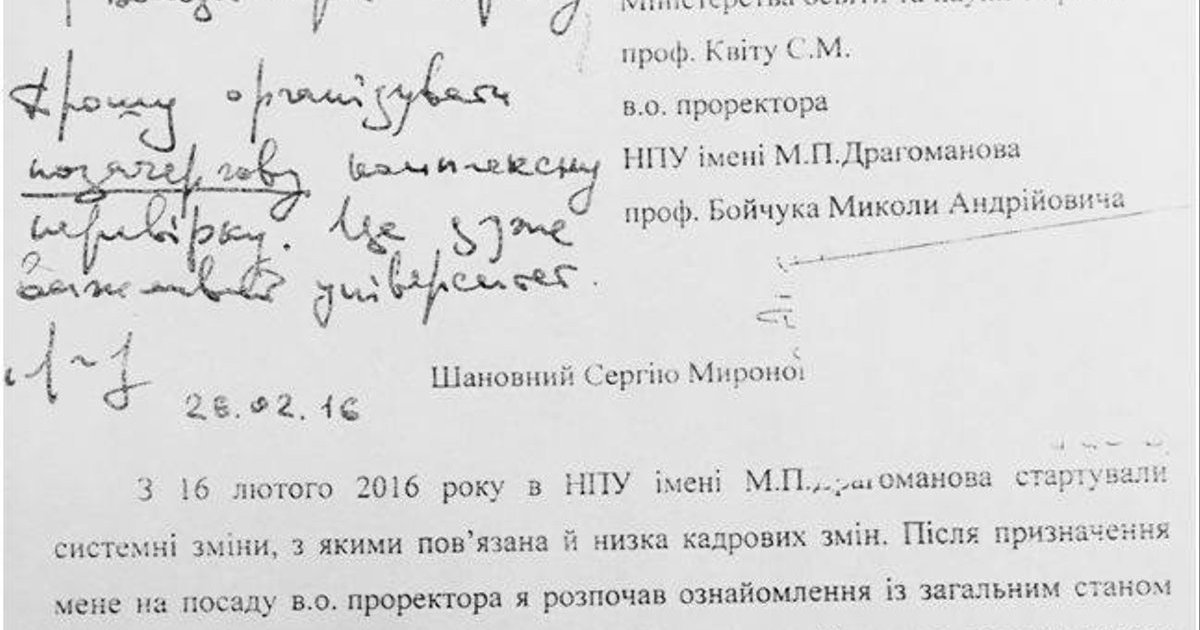 Міністерства освіти та науки
проф. Квіту С.М.
в.о. проректора
НПУ імені М.П.Драгоманова
проф. Бойчука Миколи Андрійовича
Прошу організувати
позачергову комплексну
перевірку. Це дуже
важливий університет.
26.02.16
Шановний Сергію Мироно
З 16 лютого 2016 року в НПУ імені М.П.Драгоманова стартували
системні зміни, з якими пов’язана й низка кадрових змін. Після призначення
мене на посаду в.о. проректора я розпочав ознайомлення із загальним станом